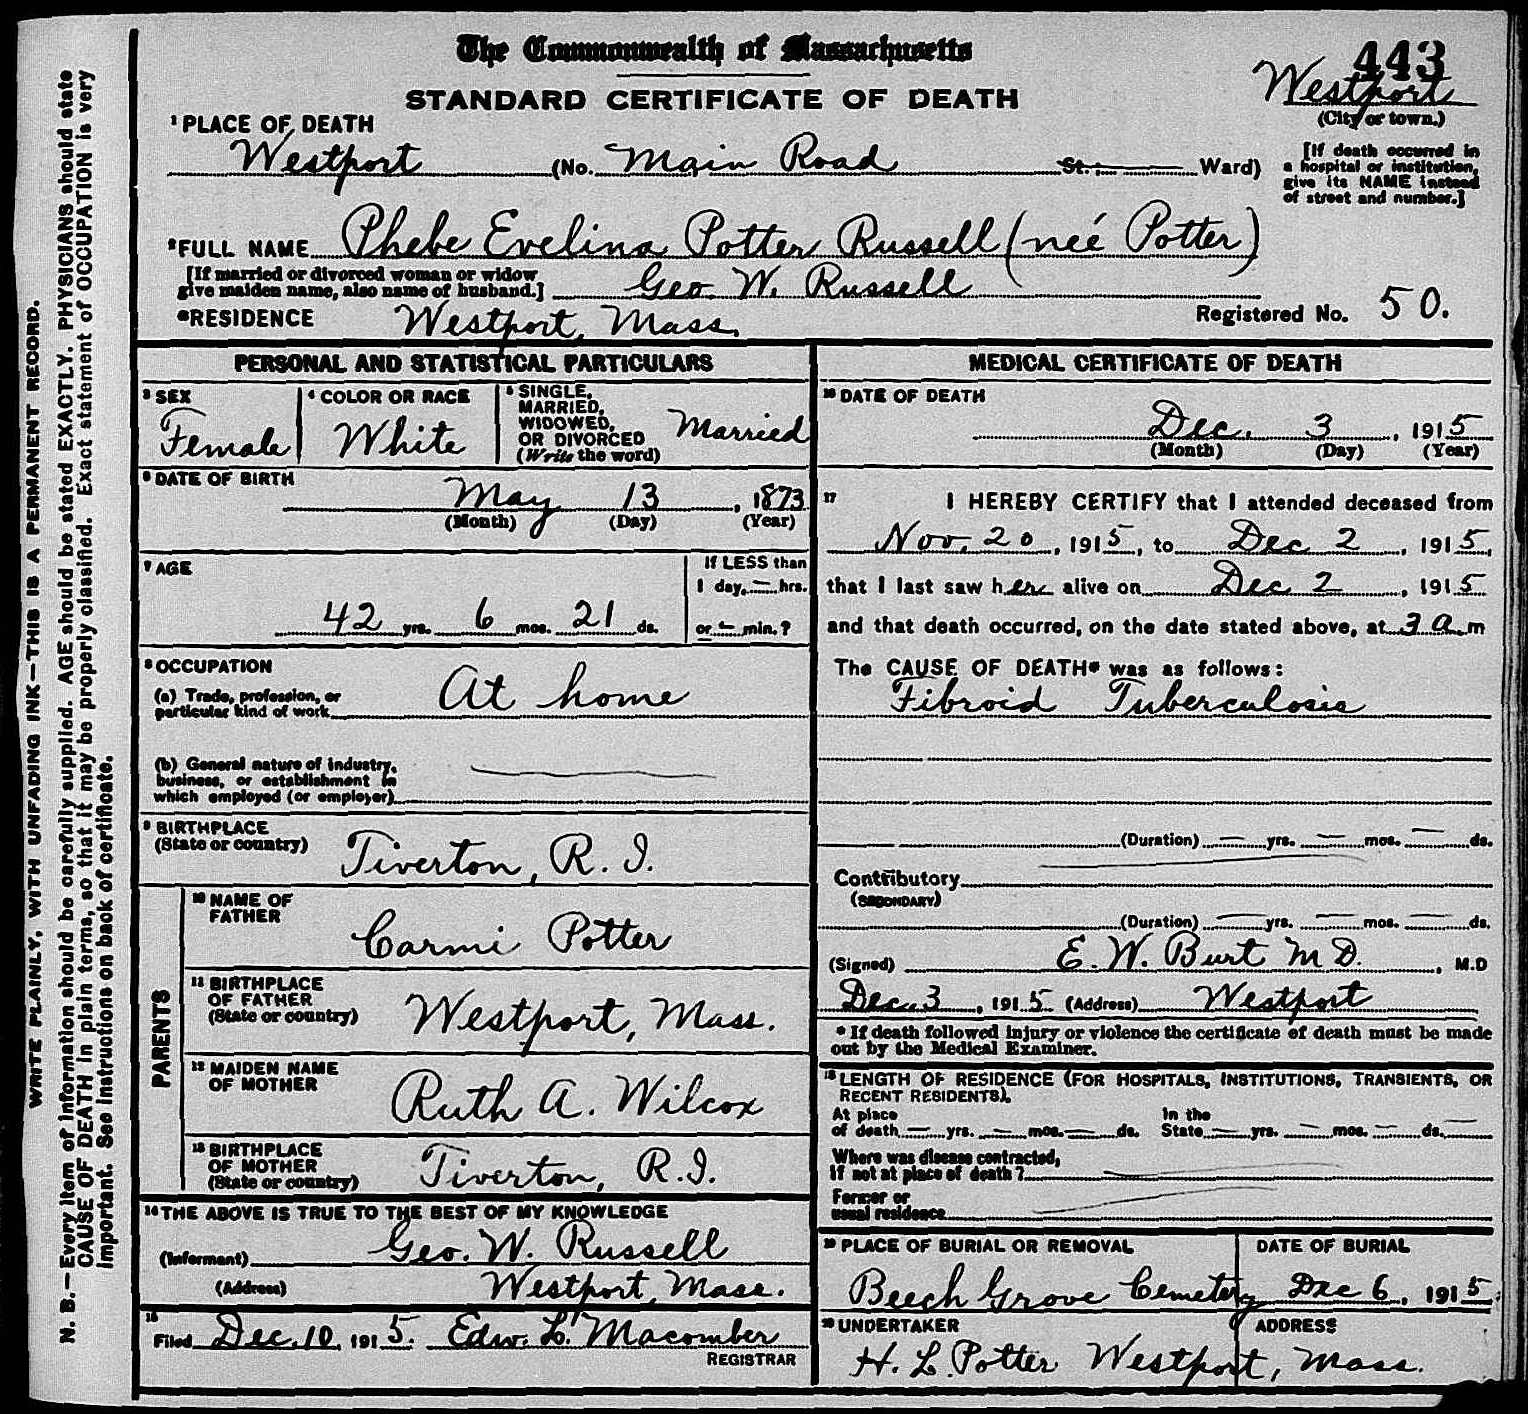 The Commonwealth of Massachusetts
443
STANDARD CERTIFICATE OF DEATH
Westport
(City or town.)
1 PLACE OF DEATH
Westport (No. Main Road St.; Ward)
[If death occurred in
a hospital or institution,
give its NAME instead
of street and number.]
2 FULL NAME Phebe Evelina Potter Russell (neé Potter)
[If married or divorced woman or widow
give maiden name, also name of husband.] Geo. W. Russell
RESIDENCE Westport, Mass.
Registered No. 50.
PERSONAL AND STATISTICAL PARTICULARS
3 SEX
Female
4 COLOR OR RACE
White
5 SINGLE,
MARRIED,
WIDOWED,
OR DIVORCED
(Write the word)
Married
6 DATE OF BIRTH
May 13, 1873
(Month) (Day) (Year)
7 AGE
42 yrs. 6 mos. 21 ds.
If LESS than
1 day, — hrs.
or — min.?
8 OCCUPATION
(a) Trade, profession, or
particular kind of work At home
(b) General nature of industry,
business, or establishment in
which employed (or employer)
9 BIRTHPLACE
(State or country) Tiverton, R. I.
PARENTS
10 NAME OF
FATHER
Carmi Potter
11 BIRTHPLACE
OF FATHER
(State or country) Westport, Mass.
12 MAIDEN NAME
OF MOTHER
Ruth A. Wilcox
13 BIRTHPLACE
OF MOTHER
(State or country) Tiverton, R.I.
14 THE ABOVE IS TRUE TO THE BEST OF MY KNOWLEDGE
(Informant) Geo. W. Russell
(Address) Westport, Mass.
15
Filed Dec. 10, 1915. Edw. L. Macomber
REGISTRAR
MEDICAL CERTIFICATE OF DEATH
16 DATE OF DEATH
Dec. 3, 1915
(Month) (Day) (Year)
17 I HEREBY CERTIFY that I attended deceased from
Nov. 20, 1915, to Dec 2, 1915,
that I last saw her alive on Dec 2, 1915
and that death occurred, on the date stated above, at 3 a.m
The CAUSE OF DEATH* was as follows:
Fibroid Tuberculosis
(Duration) — yrs. — mos. — ds.
Contributory
(SECONDARY)
(Duration) — yrs. — mos. — ds.
(Signed) E. W. Burt M D., M.D
Dec. 3, 1915 (Address) Westport
* If death followed injury or violence the certificate of death must be made
out by the Medical Examiner.
18 LENGTH OF RESIDENCE (FOR HOSPITALS, INSTITUTIONS, TRANSIENTS, OR
RECENT RESIDENTS).
At place In the
of death — yrs. — mos. — ds. State — yrs. — mos. — ds. —
Where was disease contracted,
if not at place of death?
Former or
usual residence
19 PLACE OF BURIAL OR REMOVAL
Beech Grove Cemetery
DATE OF BURIAL
Dec 6, 1915.
20 UNDERTAKER
H. L. Potter
ADDRESS
Westport, Mass.
WRITE PLAINLY, WITH UNFADING INK—THIS IS A PERMANENT RECORD.
N. B.—Every item of information should be carefully supplied. AGE should be stated EXACTLY. PHYSICIANS should state
CAUSE OF DEATH in plain terms, so that it may be properly classified. Exact statement of OCCUPATION is very
important. See instructions on back of certificate.